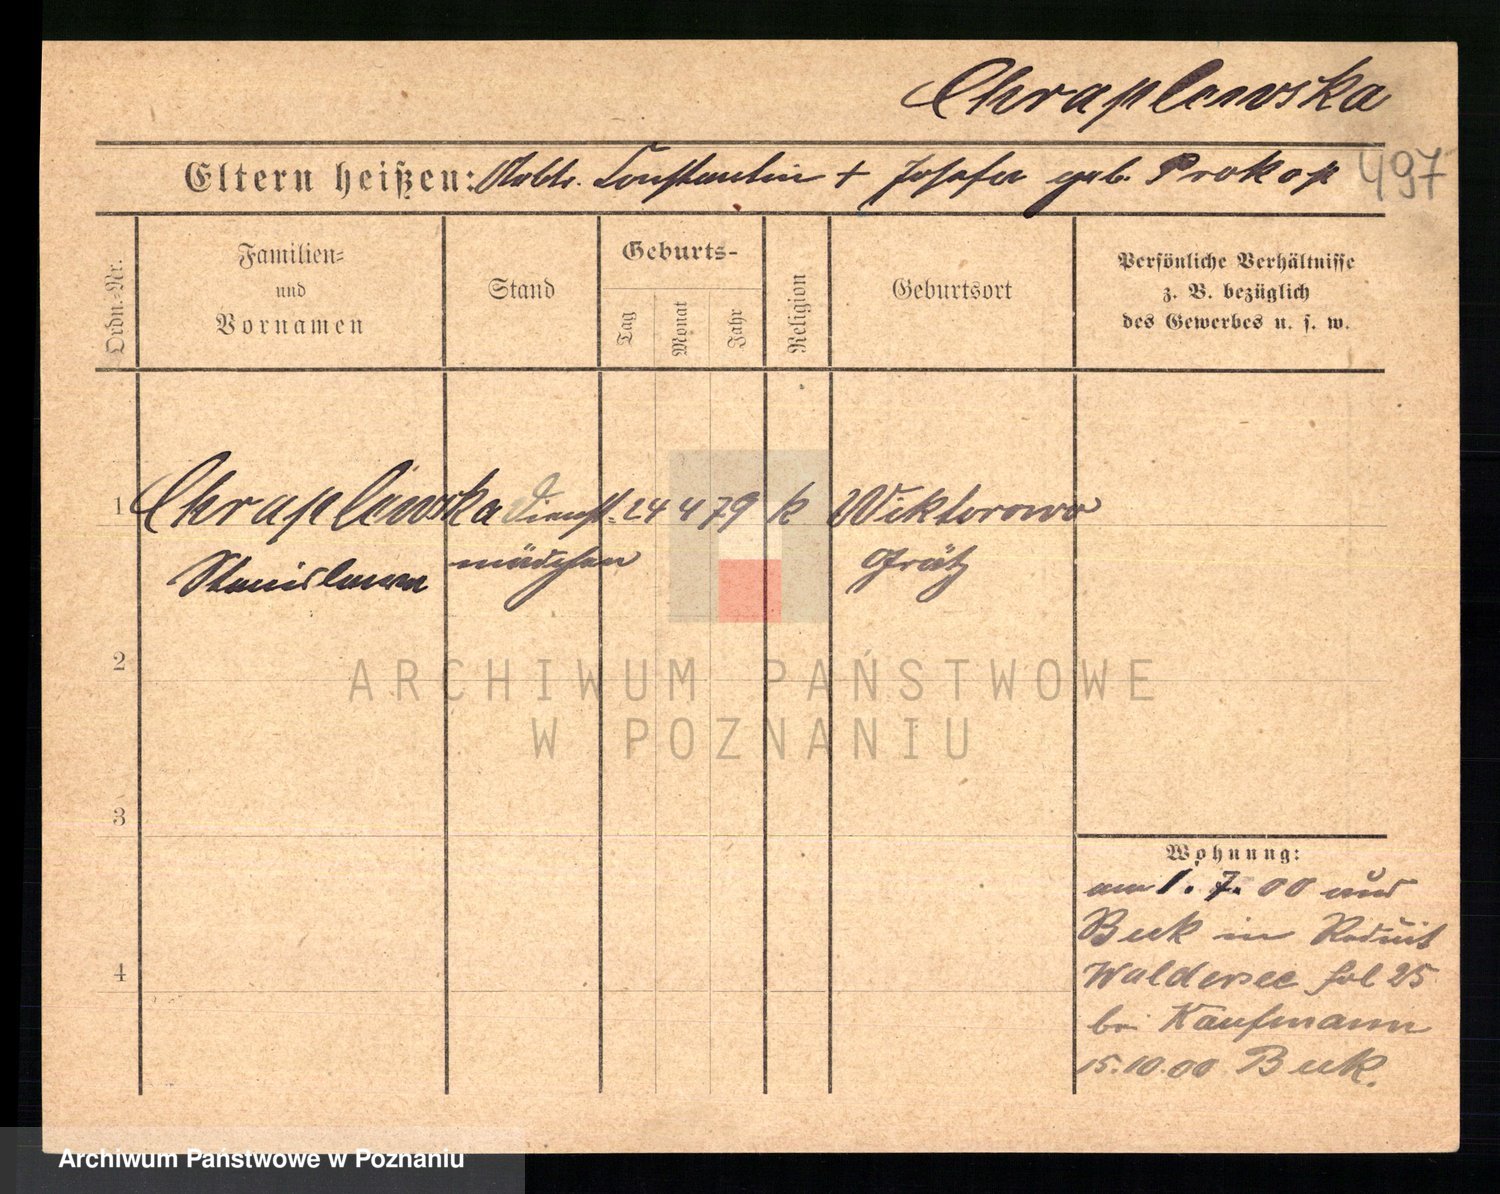 Chraplewska
497
Eltern heißen: Arbtr. Constantin + Josefa geb. Prokop
Ordn.-Nr.
Familien-
und
Vornamen
Stand
Geburts-
Tag
Monat
Jahr
Religion
Geburtsort
Persönliche Verhältnisse
z. B. bezüglich
des Gewerbes u. s. w.
1 Chraplewska Dienst- 24 4 79 k Wiktorowo
Stanislawa mädchen Grätz
2
3
4
Wohnung:
am 1. 7. 00 aus
Buk in Reduit
Waldersee fol 25
bei Kaufmann
15.10.00 Buk.
ARCHIWUM PAŃSTWOWE
W POZNANIU
Archiwum Państwowe w Poznaniu